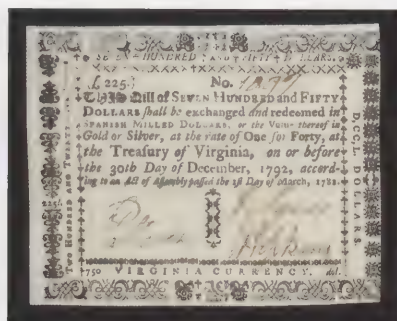 SEVEN HUNDRED AND FIFTY DOLLARS.
£ 225. No.
THIS Bill of SEVEN HUNDRED and FIFTY
DOLLARS shall be exchanged and redeemed in
SPANISH MILLED DOLLARS, or the Value thereof in
Gold or Silver, at the rate of One for Forty, at
the Treasury of Virginia, on or before
the 30th Day of December, 1792, accord-
ing to an Act of Assembly passed the Day of March, 1781.
750 VIRGINIA CURRENCY. dol.
TWO HUNDRED AND TWENTY
225£
D,CC,L DOLLARS.